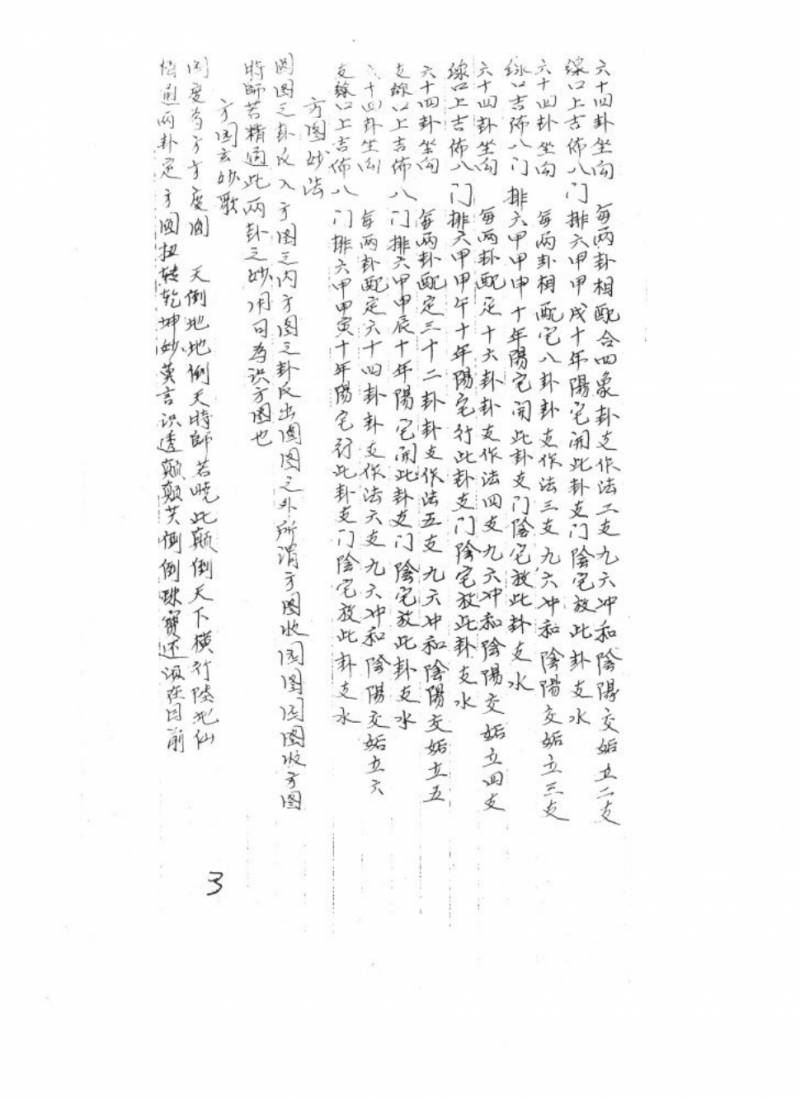 六十四卦坐向 每两卦相配合四象卦支作法二支九六冲和陰陽交姤立二支
線口上吉佈八门排六甲甲戌十年陽宅開此卦支门陰宅放此卦支水
六十四卦坐向 每两卦相配定八卦卦支作法三支九六冲和陰陽交姤立三支
線口吉佈八门排六甲甲申十年陽宅開此卦支门陰宅放此卦支水
六十四卦坐向 每两卦配定十六卦卦支作法四支九六冲和陰陽交姤立四支
線口上吉佈八门排六甲甲午十年陽宅行此卦支门陰宅放此卦支水
六十四卦坐向 每两卦配定三十二卦卦支作法五支九六冲和陰陽交姤立五
支線口上吉佈八门排六甲甲辰十年陽宅開此卦支门陰宅放此卦支水
六十四卦坐向 每两卦配定六十四卦卦支作法六支九六冲和陰陽交姤立六
支線口上吉佈八门排六甲甲寅十年陽宅行此卦支门陰宅放此卦支水
方图妙法
圆图之卦反入方图之内方图之卦反出圆图之外所谓方图收圆图圆图收方图
時師若精通此两卦之妙用可為识方图也
方图玄妙歌
圆变為方方变圆 天倒地地倒天時師若晓此颠倒天下横行陸地仙
悟通两卦定方圆扭转乾坤妙莫言识透颠颠共倒倒珠寶还须在目前
3